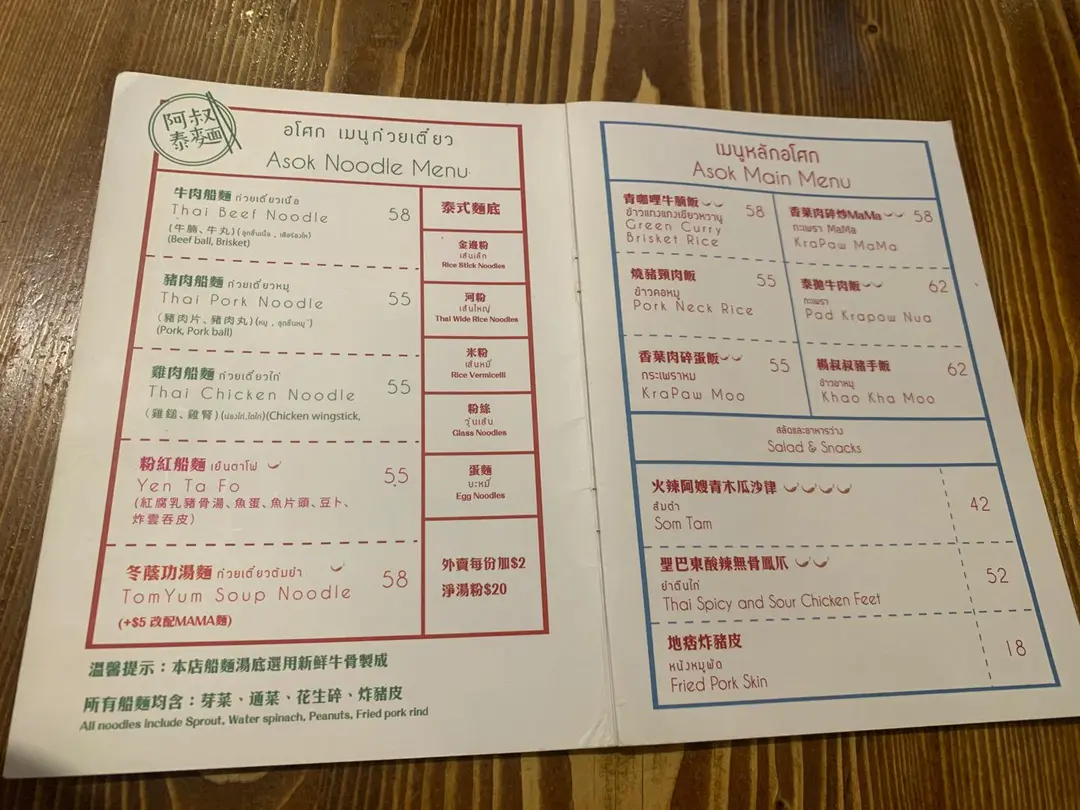 阿叔
泰麵
อโศก เมนูก๋วยเตี๋ยว
Asok Noodle Menu
牛肉船麵 ก๋วยเตี๋ยวเนื้อ
Thai Beef Noodle 58
(牛腩、牛丸)
(Beef ball, Brisket)
豬肉船麵 ก๋วยเตี๋ยวหมู
Thai Pork Noodle 55
(豬肉片、豬肉丸)
(Pork, Pork ball)
雞肉船麵 ก๋วยเตี๋ยวไก่
Thai Chicken Noodle 55
(雞鎚、雞腎) (Chicken wingstick,
粉紅船麵 เย็นตาโฟ
Yen Ta Fo 55
(紅腐乳豬骨湯、魚蛋、魚片頭、豆卜、
炸雲吞皮)
冬蔭功湯麵 ก๋วยเตี๋ยวต้มยำ
TomYum Soup Noodle 58
(+$5 改配MAMA麵)
泰式麵底
金邊粉
เส้นเล็ก
Rice Stick Noodles
河粉
เส้นใหญ่
Thai Wide Rice Noodles
米粉
เส้นหมี่
Rice Vermicelli
粉絲
วุ้นเส้น
Glass Noodles
蛋麵
บะหมี่
Egg Noodles
外賣每份加$2
淨湯粉$20
溫馨提示：本店船麵湯底選用新鮮牛骨製成
所有船麵均含：芽菜、通菜、花生碎、炸豬皮
All noodles include Sprout, Water spinach, Peanuts, Fried pork rind
เมนูหลักอโศก
Asok Main Menu
青咖哩牛腩飯 58
ข้าวแกงแกงเขียวหวานู
Green Curry
Brisket Rice
燒豬頸肉飯 55
ข้าวคอหมู
Pork Neck Rice
香葉肉碎蛋飯 55
กระเพราหม
KraPaw Moo
香葉肉碎炒MaMa 58
กะเพรา MaMa
KraPaw MaMa
泰拋牛肉飯 62
กะเพรา
Pad Krapaw Nua
楊叔叔豬手飯 62
ข้าวขาหมู
Khao Kha Moo
สลัดและอาหารว่าง
Salad & Snacks
火辣阿嫂青木瓜沙律 42
ส้มตำ
Som Tam
聖巴東酸辣無骨鳳爪 52
ยำตีนไก่
Thai Spicy and Sour Chicken Feet
地痞炸豬皮 18
หนังหมูพัด
Fried Pork Skin